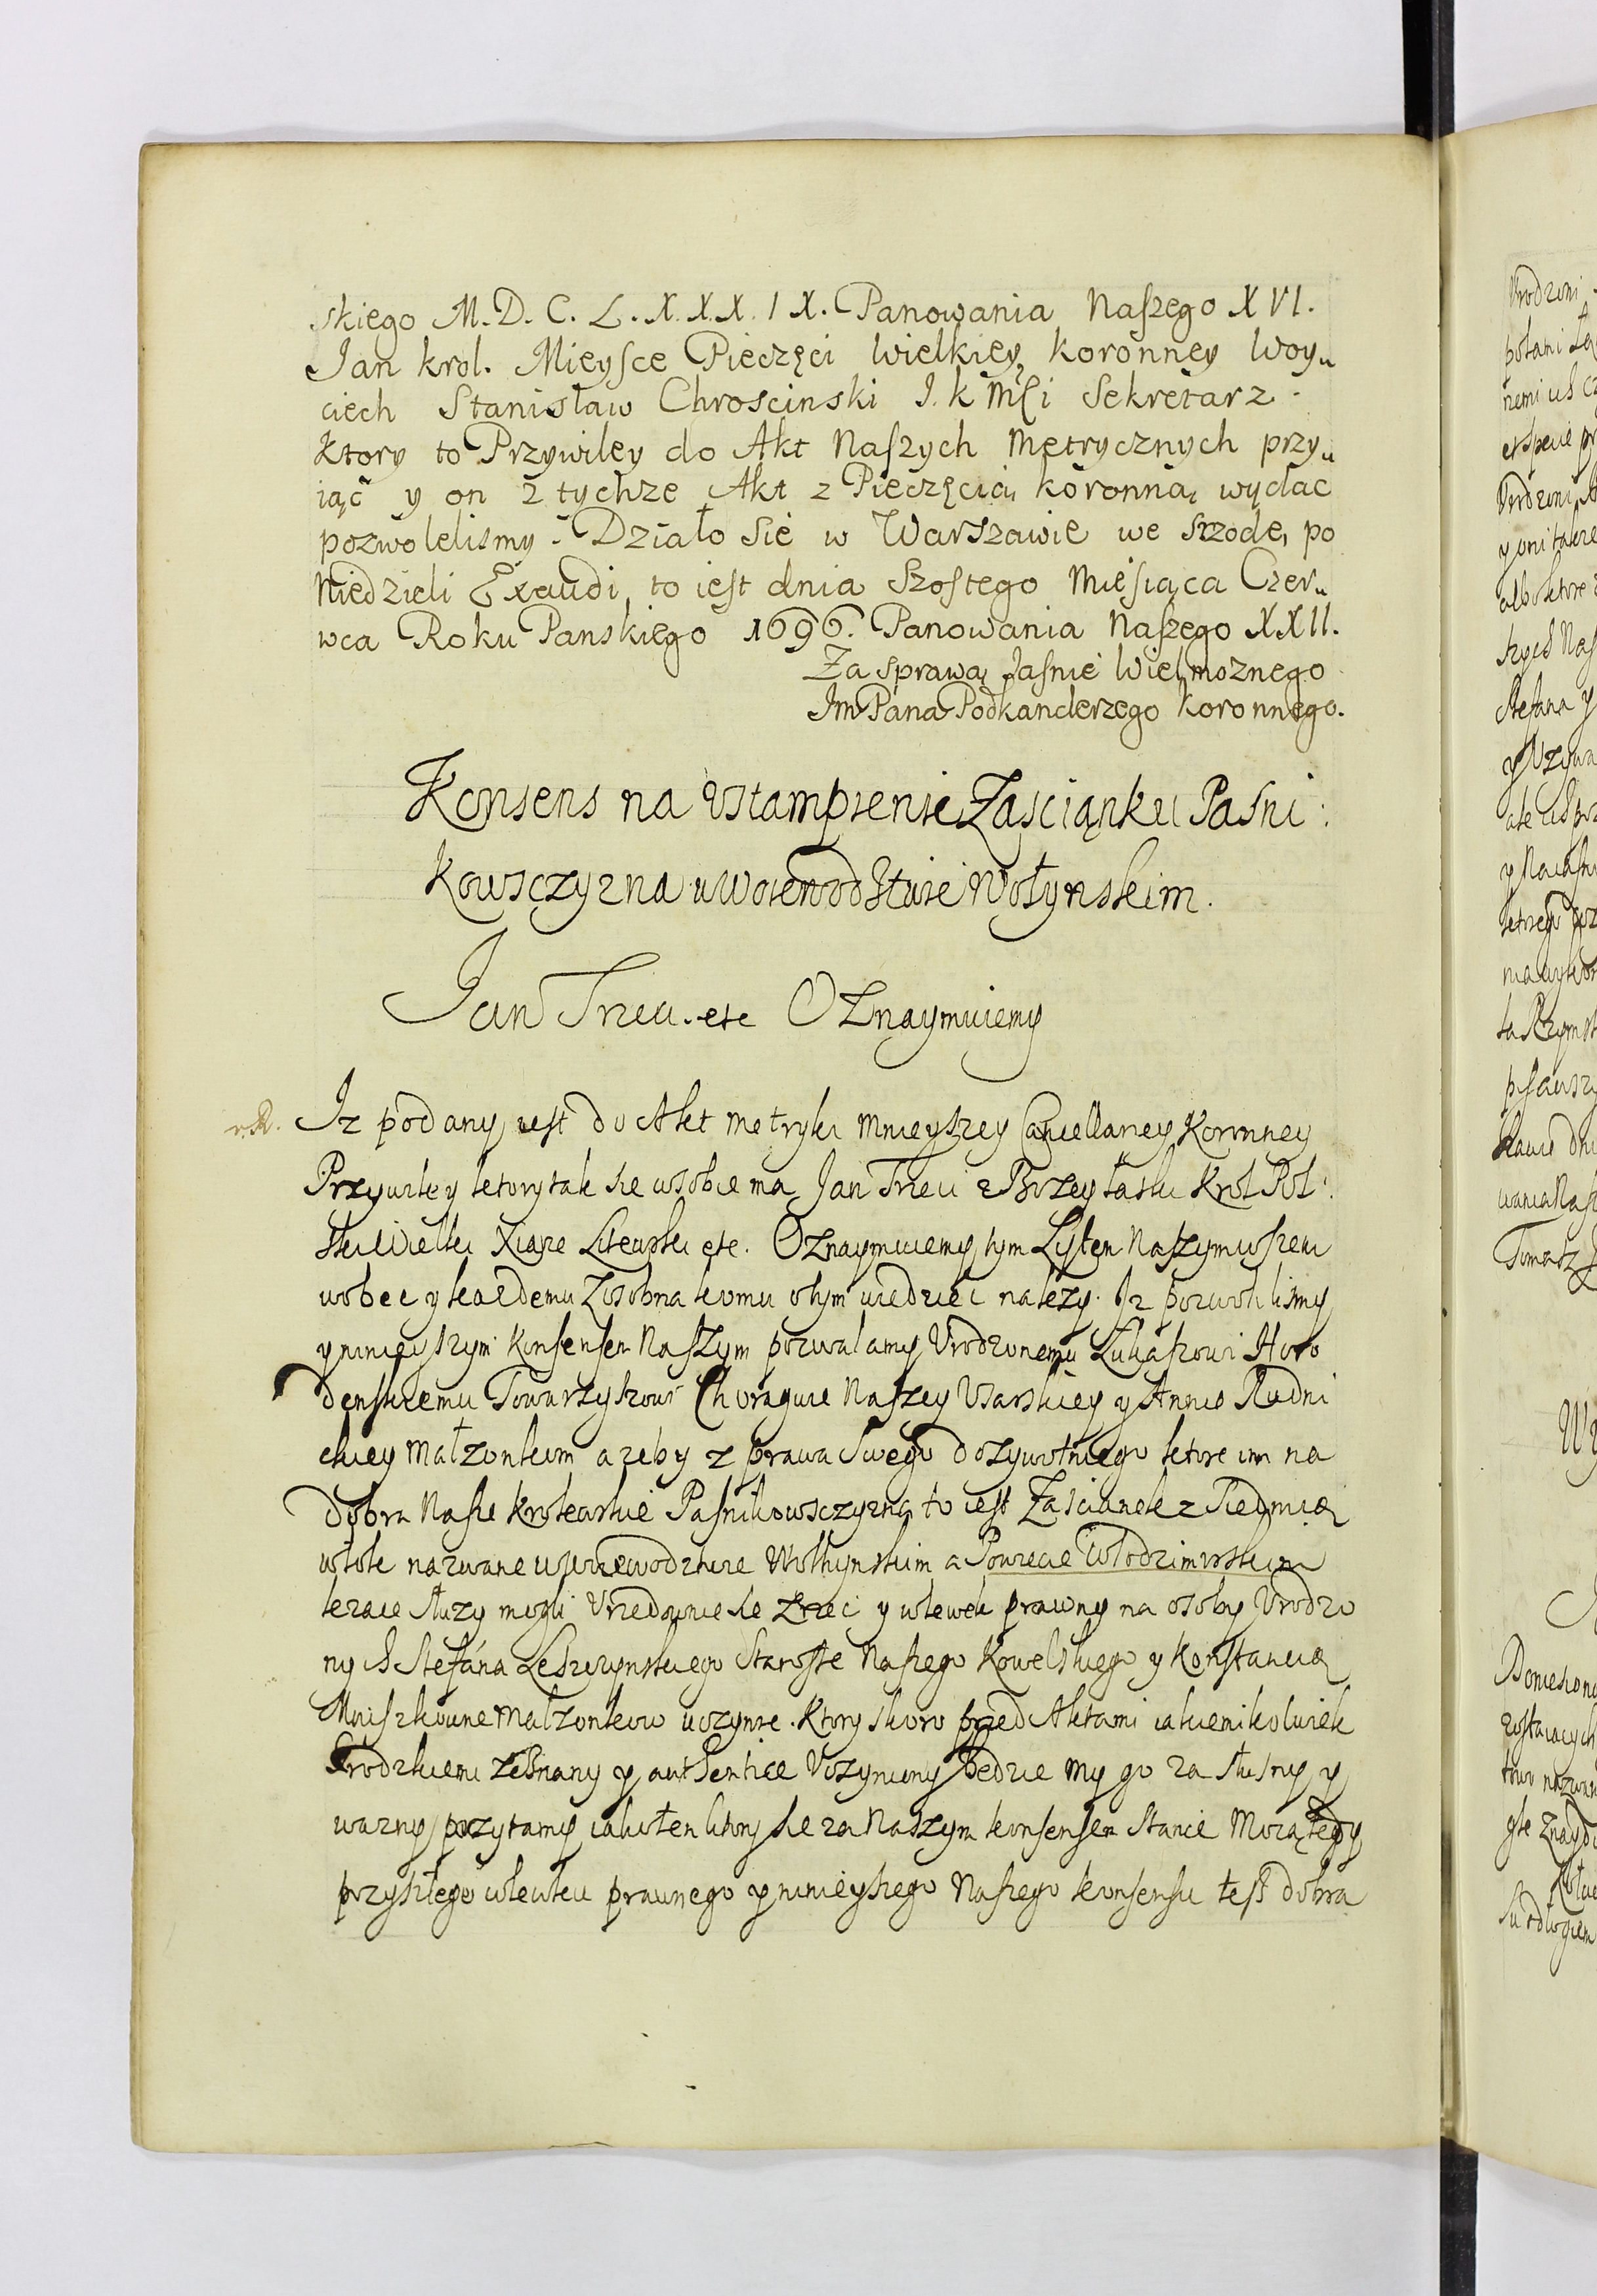 skiego M. D. C. L. X. X. X. I X. Panowania Naszego XVI.
Jan krol. Mieysce Pieczęci Wielkiey koronney Woy„
ciech Stanisław Chroscinski J. K Mści Sekretarz.
Ktory to Przywiley do Akt Naszych Metrycznych przy„
iąć y on z tychze Akt z Pieczęcią koronną wydac
pozwolelismy. Działo się w Warszawie we Srzodę, po
Niedzieli Exaudi, to iest dnia Szostego Miesiąca Czer„
wca Roku Panskiego 1696. Panowania Naszego XXII.
Za sprawą Jasnie Wielmoznego
Im Pana Podkanclerzego Koronnego.
Konsens na Vstampienie Zasciąnku Pasni:
kowsczyzna w Woiewodstwie Wołynskim.
Jan Trzeci. etc Oznaymuiemy
Iz podany iest do Akt Metryki Mnieyszey Cancellaryey Koronney
Przywiley ktory tak sie w sobie ma Jan Trzeci z Bozey łaski Krol Pol:
ski Wielki Xiąze Litewski etc. Oznaymuiemy tym Lystem Naszym wszem
wobec y kazdemu zosobna komu o tym wiedziec nalezy. Iz pozwolilismy
y ninieyszym Konsensem Naszym pozwalamy Vrodzonemu Łukaszowi Horo
denskiemu Towarzyszowi Choragwie Naszey Vsarskiey y Annie Rudni
ckiey Małzonkom azeby z prawa Swego dozywotniego ktore im na
dobra Nasze Krolewskie Pasnikowsczyzna to iest Zascianek z Siedmią
włok nazwane w Woiewodztwie Wołhynskim a Powiecie Włodzimirskim
lezace słuzy mogli Vrzedownie sie zrzec y wlewek prawny na osoby Vrodzo
nych Stefana Leszczynskiego Staroste Naszego Kowelskiego y Konstancią
Mniszkowne Małzonkow uczynic. Ktory skoro przed Aktami iakiemikolwiek
Grodzkiemi zeznany y authentice Vczyniony Bedzie my go za słusny y
wazny poczytamy iako ten ktory sie za Naszym konsensem stanie Mocą tedy
przyszłego wlewku prawnego y ninieyszego Naszego konsensu też dobra